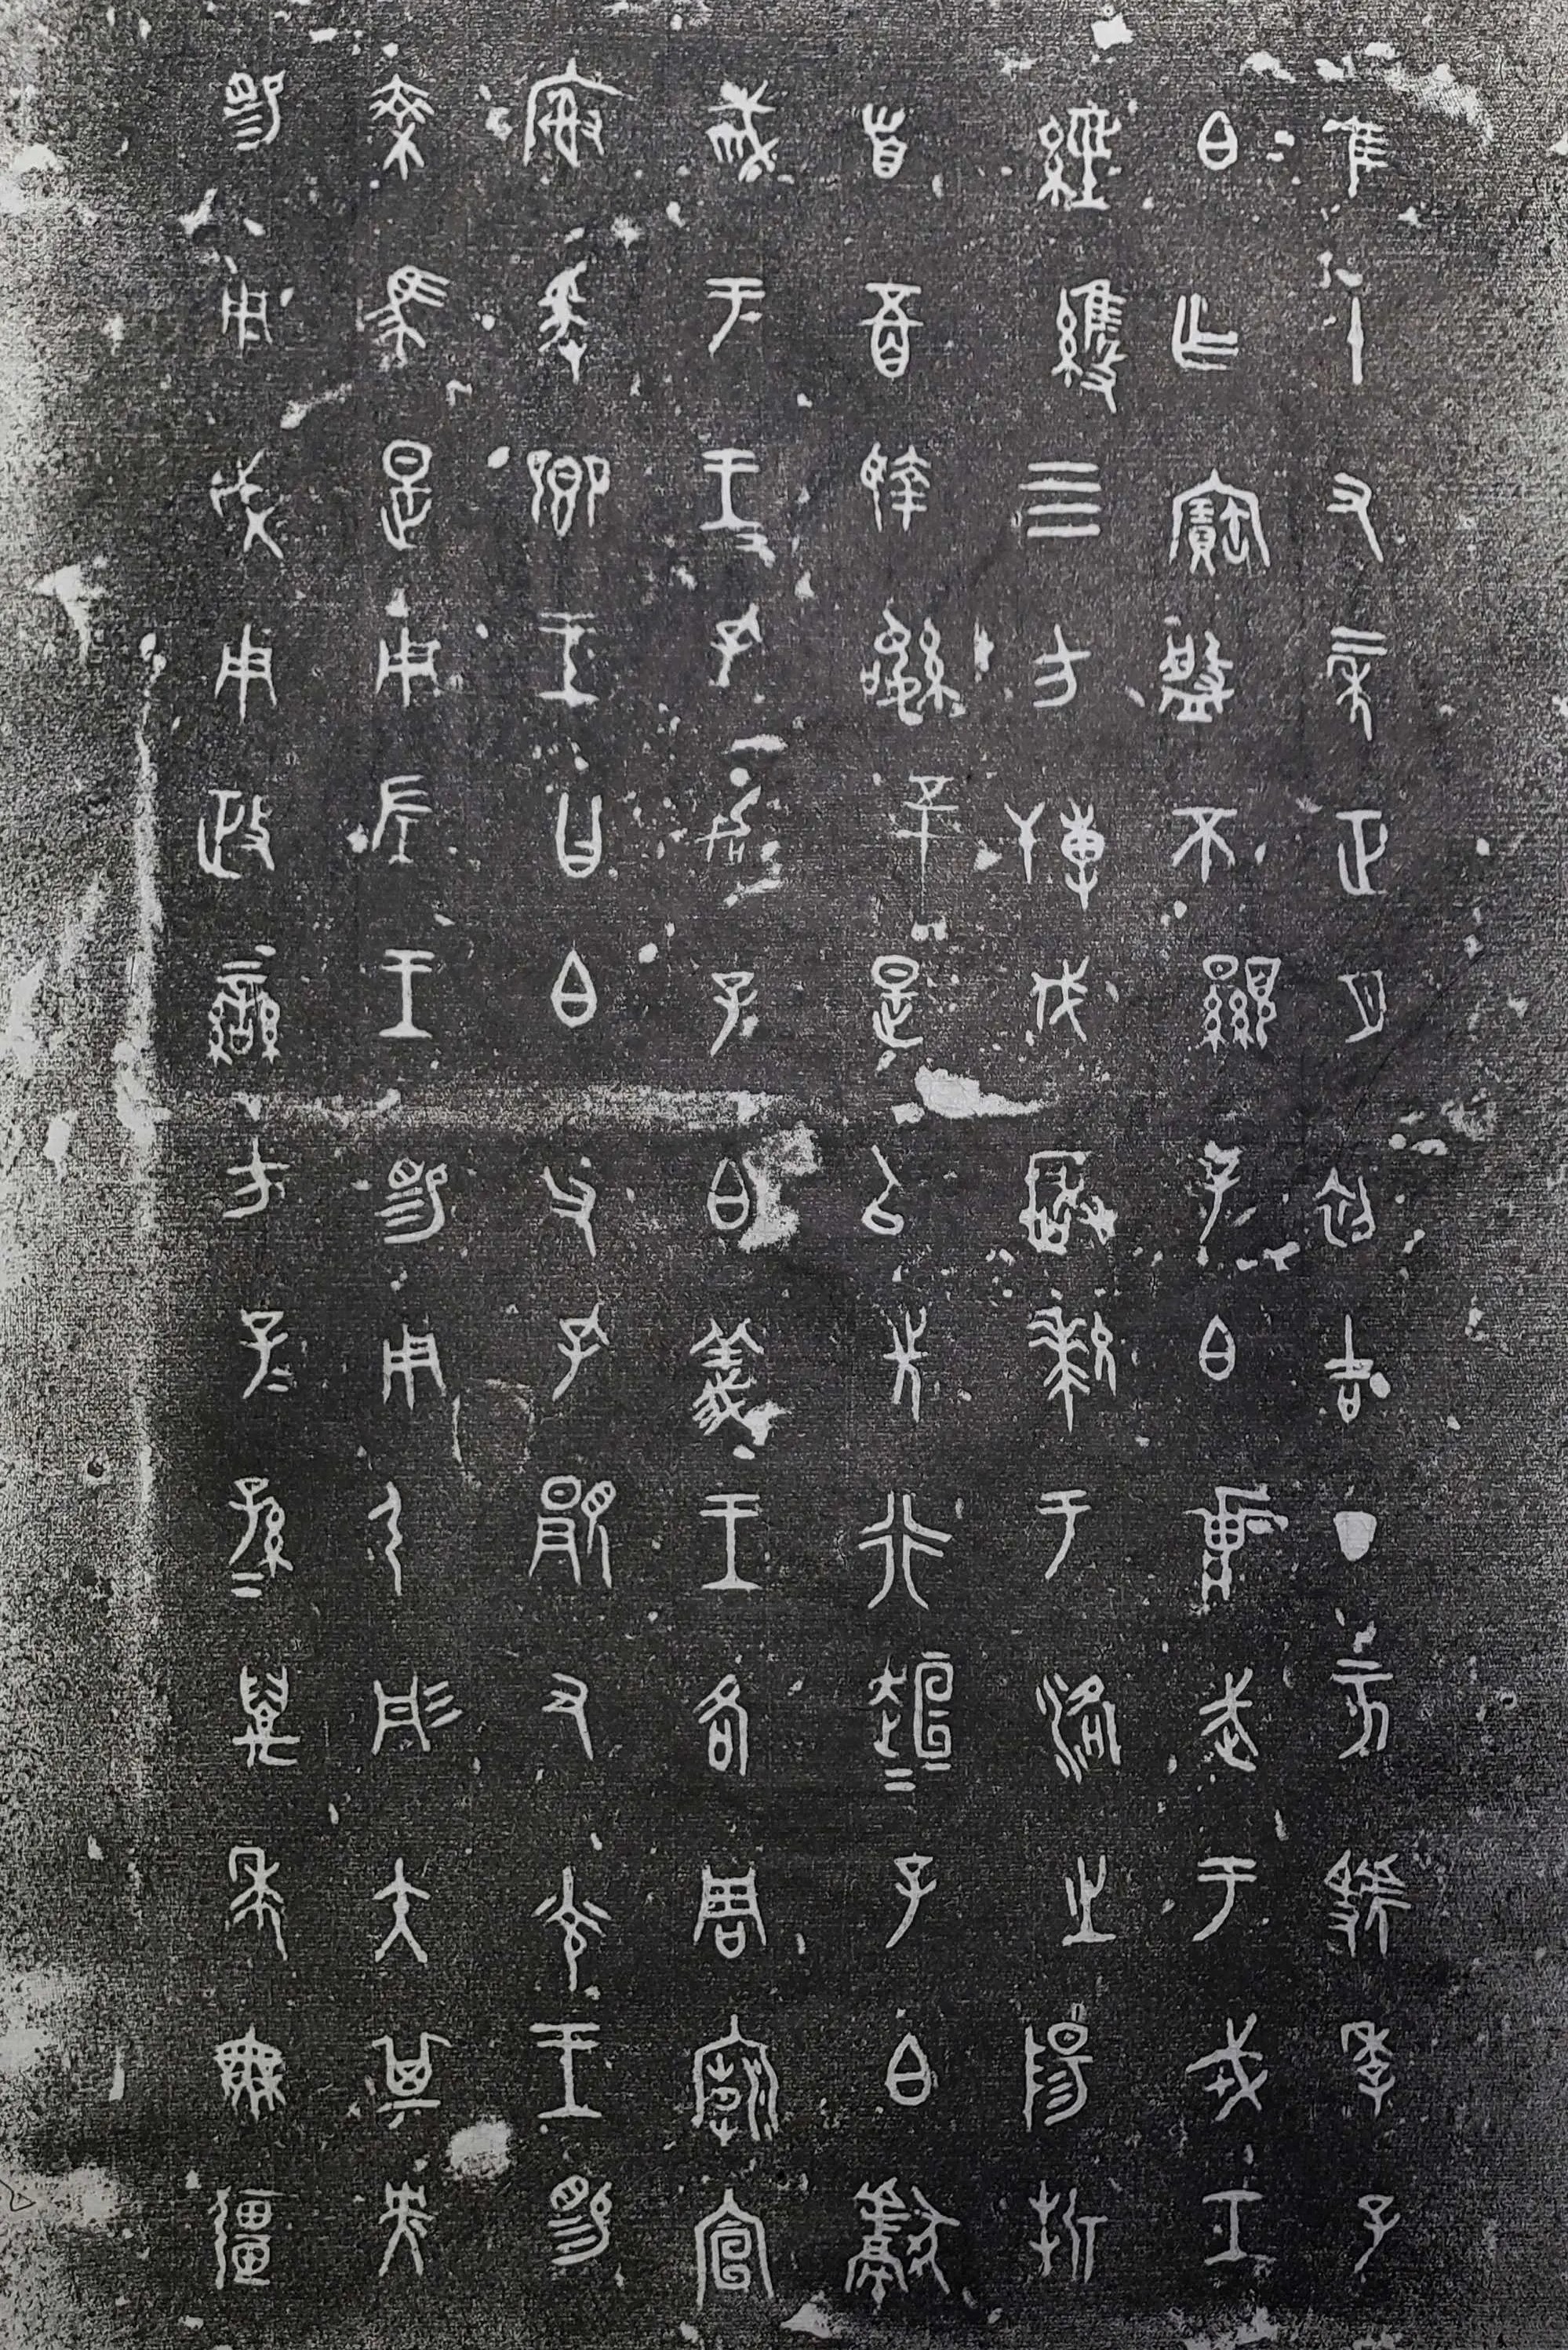 隹十又二年正月初吉丁亥虢季子
白乍寶盤不顯子白𤕌武于戎工
經維四方搏伐玁狁于洛之陽折
首五百執訊五十是以先行𧻚=子白獻
馘于王王孔加子白義王各周廟宣
廟爰卿王曰白父孔顯又光王賜
乘馬是用左王賜用弓彤矢其央
賜用戉用政蠻方子=孫=萬年無疆